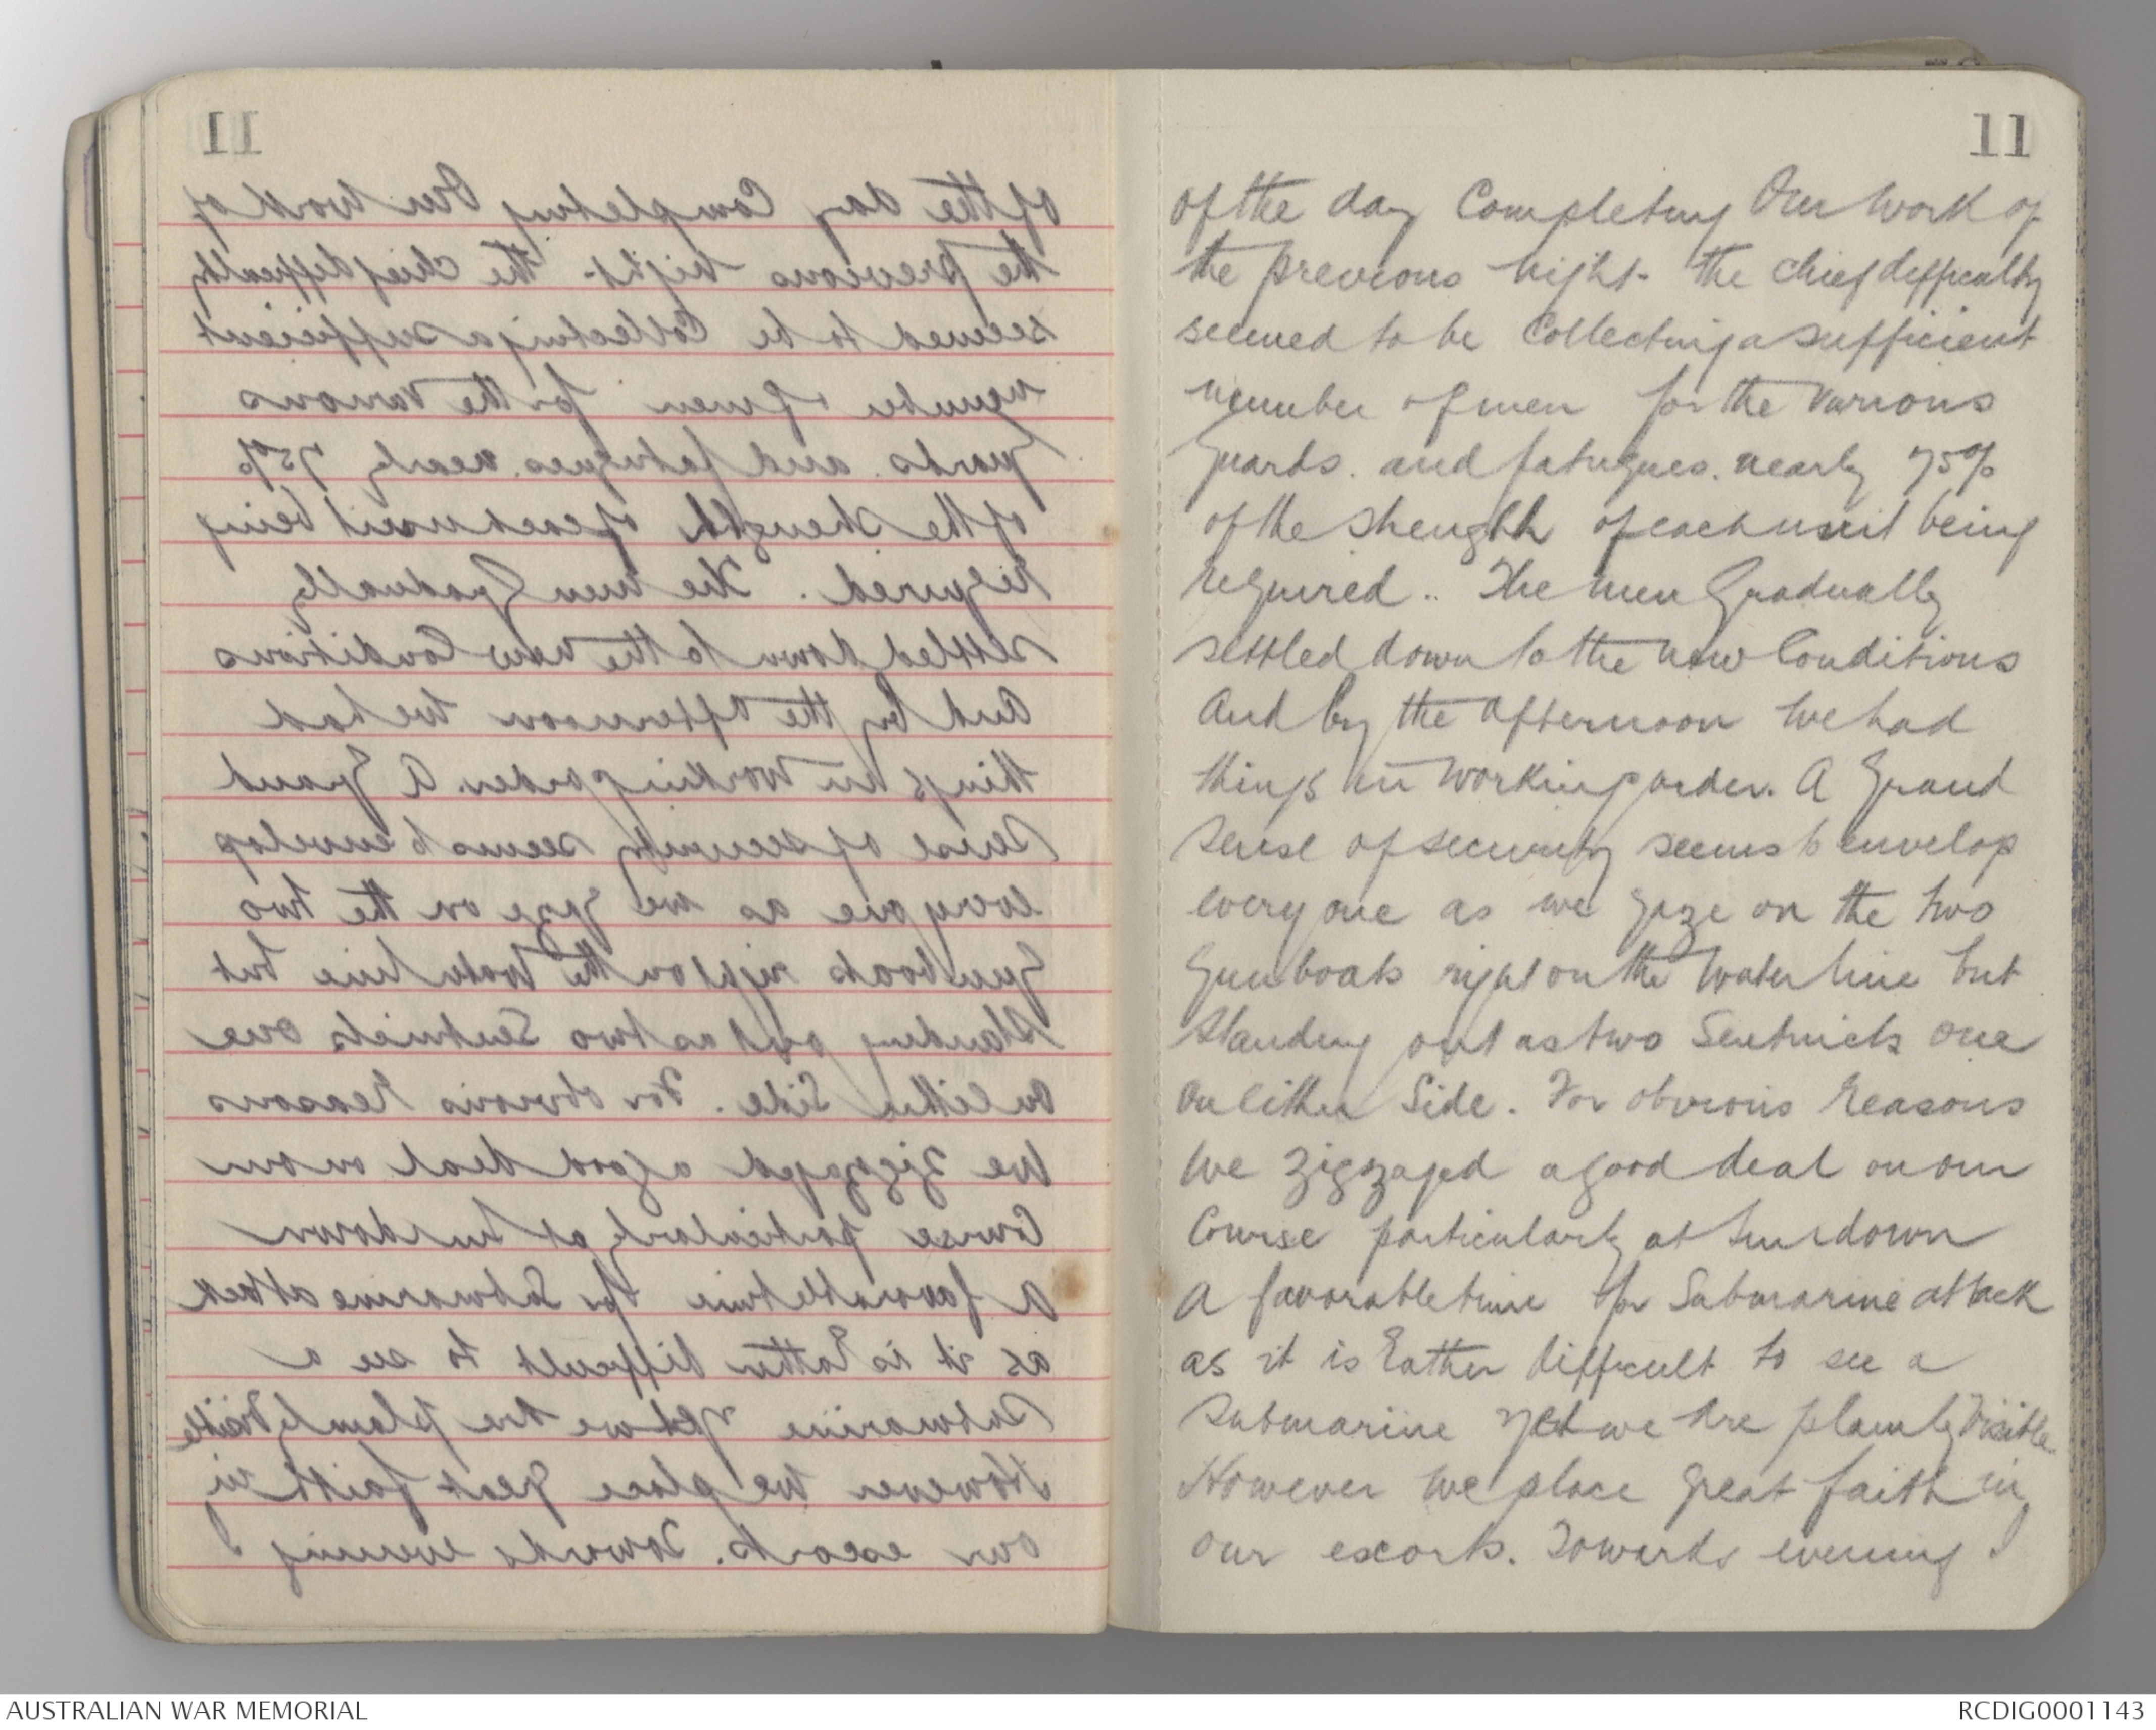 11
of the day Completing Our Work of
the previous night. the chief difficulty
seemed to be Collecting a sufficient
number of men for the various
Guards. and fatigues. nearly 75%
of the strength of each unit being
required.. The men Gradually
settled down to the new Conditions
And by the afternoon We had
things in Working order. A Grand
Sense of security seems to envelop
every one as we gaze on the two
Gun boats right on the Water line but
Standing out as two Sentinels one
On either Side. For obvious Reasons
We zigzaged a good deal on our
Course particularly at Sundown
A favorable time for Submarine attack
as it is Rather difficult to see a
Submarine Yet we Are plainly Visible
However We place great faith in
our escorts. Towards evening I
AUSTRALIAN WAR MEMORIAL
RCDIG0001143